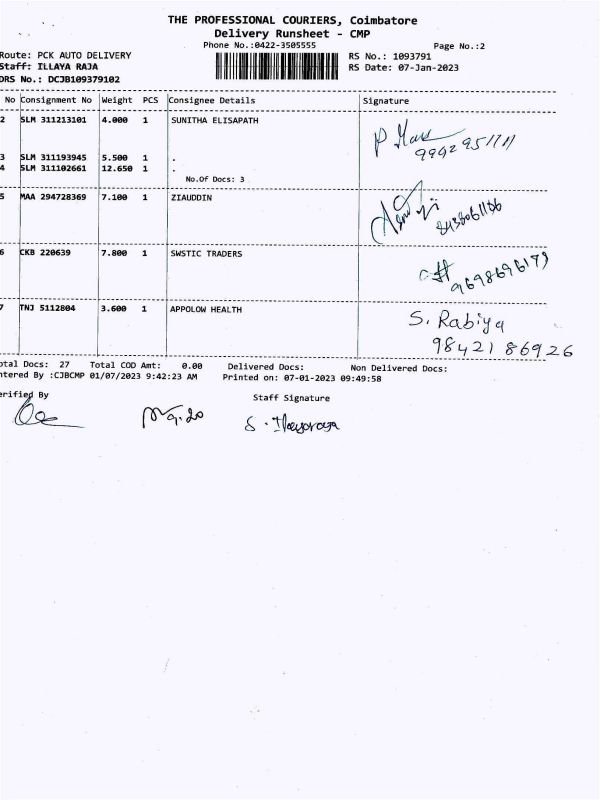 THE PROFESSIONAL COURIERS, Coimbatore
Delivery Runsheet - CMP
Phone No.:0422-3505555
Page No.:2
Route: PCK AUTO DELIVERY
RS No.: 1093791
Staff: ILLAYA RAJA
RS Date: 07-Jan-2023
DRS No.: DCJB109379102
No Consignment No Weight PCS Consignee Details Signature
2 SLM 311213101 4.000 1 SUNITHA ELISAPATH
3 SLM 311193945 5.500 1 .
4 SLM 311102661 12.650 1 .
No.Of Docs: 3
5 MAA 294728369 7.100 1 ZIAUDDIN
6 CKB 220639 7.800 1 SWSTIC TRADERS
9698696179
7 TNJ 5112804 3.600 1 APPOLOW HEALTH
S. Rabiya
98421 86926
otal Docs: 27 Total COD Amt: 0.00 Delivered Docs: Non Delivered Docs:
ntered By :CJBCMP 01/07/2023 9:42:23 AM Printed on: 07-01-2023 09:49:58
erified By Staff Signature